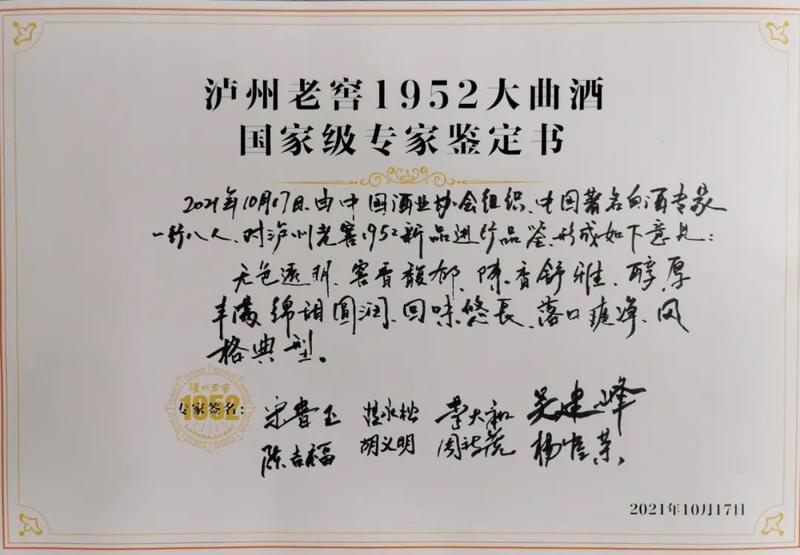 泸州老窖1952大曲酒
国家级专家鉴定书
2021年10月17日,由中国酒业协会组织、中国著名白酒专家
一行八人,对泸州老窖1952新品进行品鉴,形成如下意见:
无色透明、窖香馥郁、陈香舒雅、醇厚
丰满、绵甜圆润、回味悠長、落口爽净、风
格典型。
泸州老窖
1952
LUZHOULAOJIAO
专家签名:
宋书玉 范永松 李大和 吴建峰
陈吉福 胡义明 周诗 杨官荣
2021年10月17日